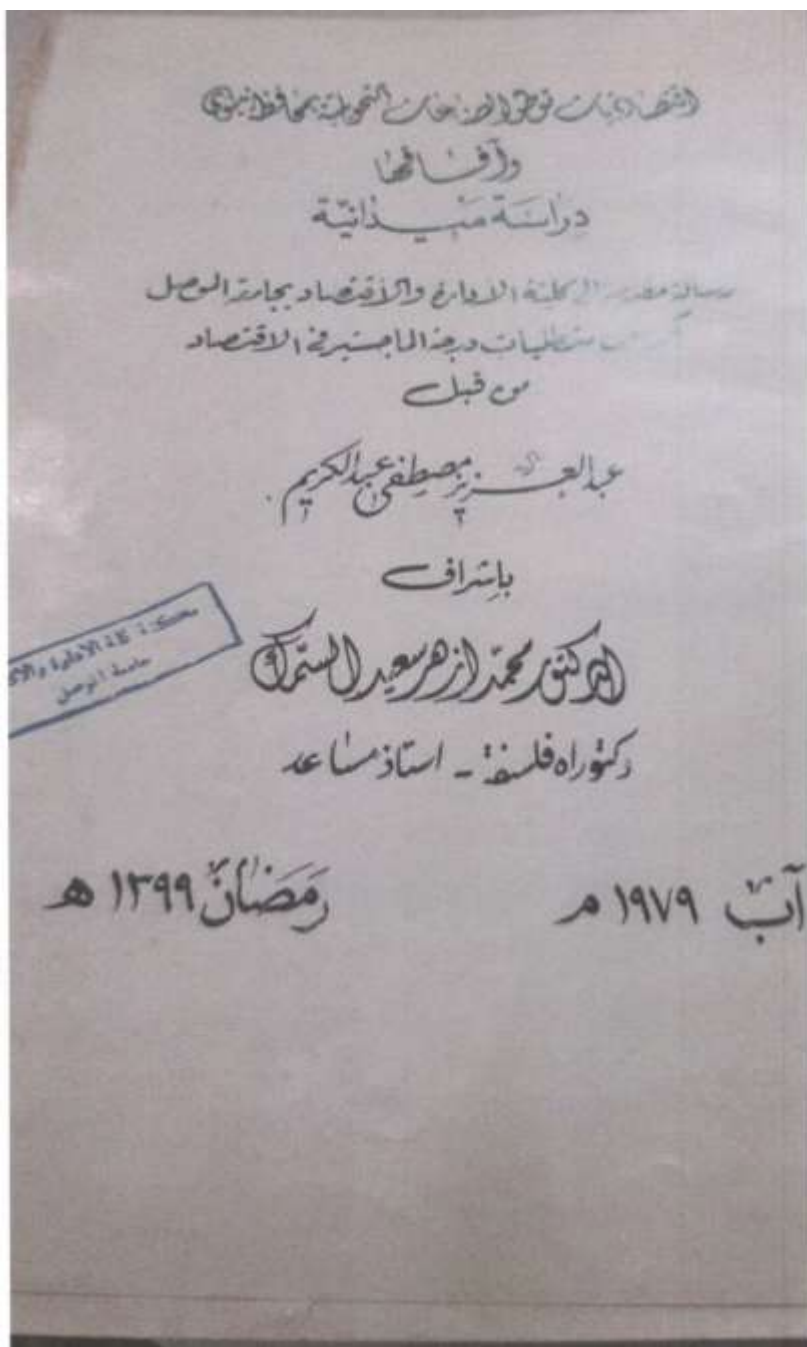 اقتصاديات توطن الصناعات التحويلية بمحافظة نينوى
وآفاقها
دراسة ميدانية
رسالة مقدمة الى كلية الادارة والاقتصاد بجامعة الموصل
من متطلبات درجة الماجستير في الاقتصاد
من قبل
عبدالعزيز مصطفى عبدالكريم
بإشراف
الدكتور محمد ازهر سعيد السماك
مكتبة كلية الادارة
جامعة الموصل
دكتوراه فلسفة - استاذ مساعد
آب ١٩٧٩ م رمضان ١٣٩٩ هـ